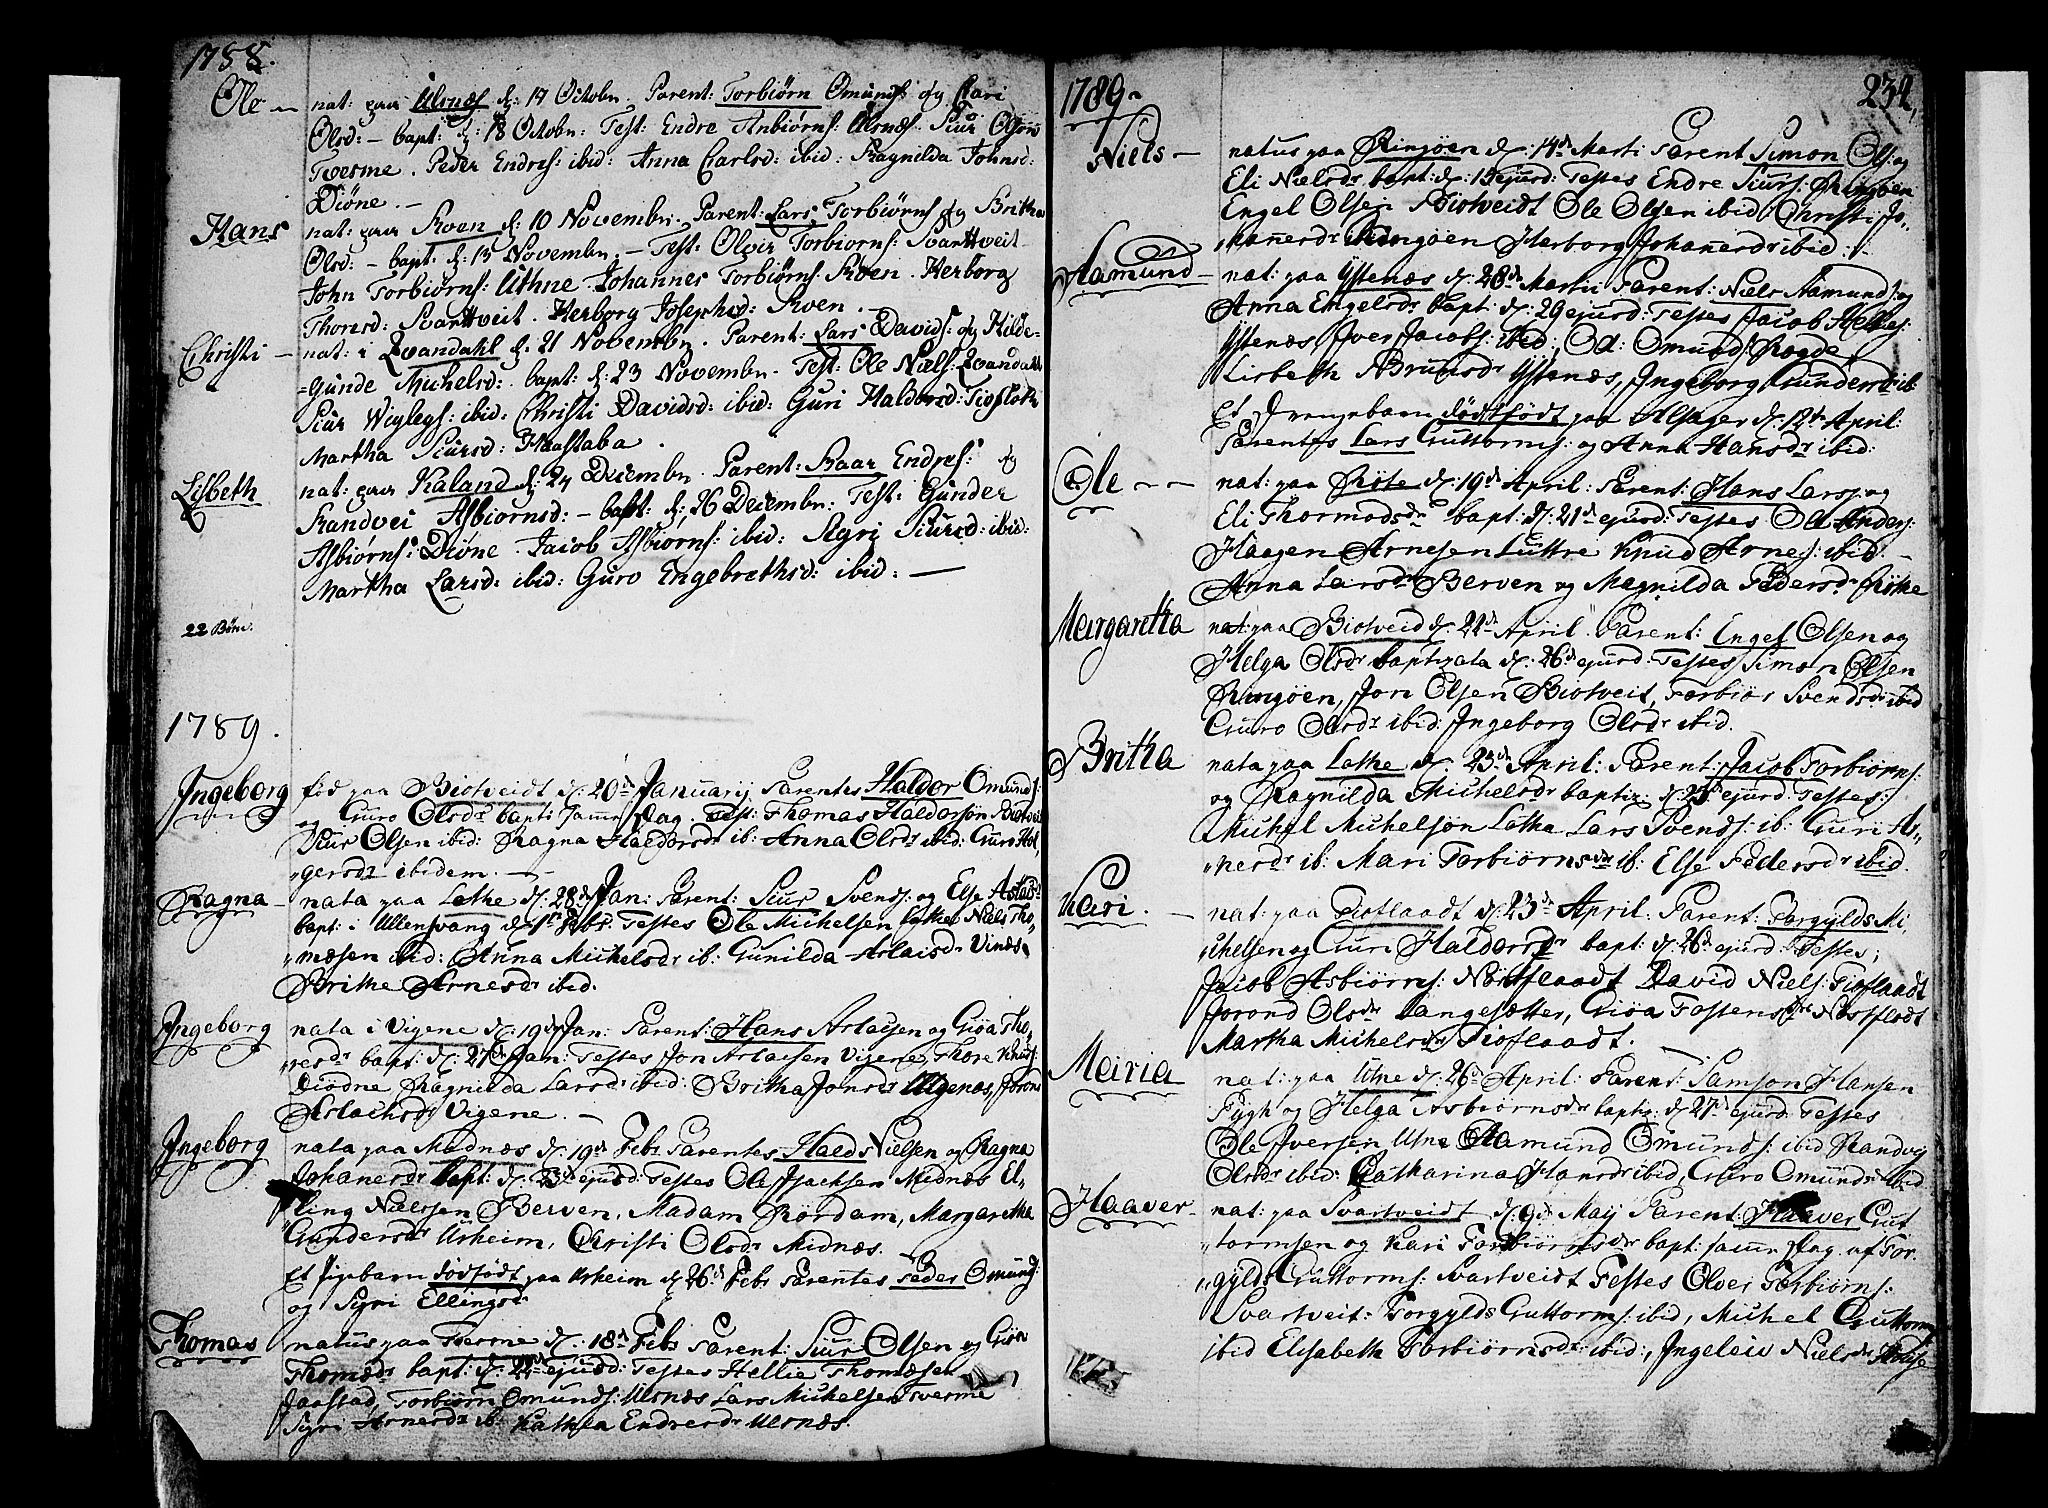 1788.
Ole — nat: paa Ulsnæs d: 17 Octobr. Parent: Torbiørn Omunds: og Cari
Olsd: – bapt: d: 18 Octobr: Test: Endre Anbiørns: Ulsnæs. Siur Olsøn
Tvesme. Peder Endres: ibid: Anna Carlsd: ibid: Ragnilda Johnsd:
Diøne. —
Hans nat: paa Qven d: 10 Novembr. Parent: Lars Torbiørns: og Britha
Olsd: – bapt: d: 15 Novembr. – Test: Olvir Torbiørns: Svartveit.
John Torbiørns: Uthne. Johannes Torbiørns: Qven. Herborg
Thoresd: Svartveit. Herborg Josephsd: Qven. —
Christi — nat: i Qvandahl d: 21 Novembr. Parent: Lars Davids: og Hilde-
=Gunde Michelsd: bapt: d: 23 Novembr. Test: Ole Niels: Qvandahl
Siur Wiglegs: ibid: Christi Davidsd: ibid: Guri Haldorsd: Tiofloth
Martha Siursd: Haastaba.
Lisbeth nat: paa Kaland d: 24 Decembr. Parent: Baar Endres: og
Randvei Asbiørnsd: – bapt: d: 26 Decembr: Test: Gunder
Asbiørns: Diøne. Jacob Asbiørns: ibid: Sigri Siursd: ibid:
Martha Larsd: ibid: Guro Engebrethsd: ibid: —
22 Børn.
1789.
Ingeborg fød paa Biotveidt d: 20de Januarij Parentes Haldor Omunds:
og Guro Olsdr bapt: samme Dag. Test: Thomas Haldorsøn Biotveit
Siur Olsen ibid: Ragna Haldorsdr ib: Anna Olsdr ibid: Guro Hol,
„gersdr ibidem. —
Ragna — nata paa Lothe d: 28de Jan: Parent: Siur Svends: og Else Aslaksdr
bapt: i Ullensvang d: 1te Febr: Testes Ole Michelsen Lothe Niels Tho,
„mæsen ibid: Anna Michelsdr ib: Gunilda Aslaisdr Vinæs
Brithe Arnesdr ibid.
Ingeborg nata i Vigene d: 19de Jan: Parent: Hans Aslacsen og Giøa Tho,
„resdr bapt: d: 27de Jan: Testes Jon Aslacsen Vigene, Thore Knus:
Diødne Ragnilda Larsdr ibid: Britha Jonsdr Ulgenæs, Joron
Aslachsdr Vigene. —
Ingeborg nata paa Midnæs d: 19de Febr Parentes Halds Nielsen og Ragna
Johanesdr bapt: d: 23de ejusd: Testes Ole Isachsen Midnæs El,
„ling Nielssen Berven, Madam Rørdam, Margaretha
Gundersdr Urheim, Christi Olsdr Midnæs.
Et Pigebarn dødfødt paa Urheim d: 26de Febr Parentes Peder Omunds:
og Sigri Ellingsdr
Thomas natus paa Tvesme d: 18de Febr Parent: Siur Olsen og Giøa
Thomædr bapt: d: 22de ejusd: Testes Hellie Thomæsen
Jaastad, Torbiørn Omunds: Ulsnæs Lars Michelsen Tvesme
Sigri Arnesdr ib: Kathla Endresdr Ulsnæs.
1789. 234,
Niels — natus paa Ringøen d: 14de Marti Parent Simon Ols: og
Eli Nielsdr bapt: d: 15 ejusd: Testes Endre Siurs: Ringøen
Engel Olsen Biotveidt Ole Olsen ibid Christi Jo,
„hanesdr Ringøen Herborg Johanesdr ibid: —
Aamund — nat: paa Ystenæs d: 28de Martii Parent: Niels Aamunds: og
Anna Engelsdr bapt: d: 29 ejusd: Testes Jacob Helles:
Ystenæs, Iver Jacobs: ibid, Od: Omunds: Rogde
Lisbeth Brunsdr Ystenæs, Ingeborg Gundersdr ib
Et Drengebarn dødfødt paa Alsager d: 12te April:
Parentes Lars Guttorms: og Anna Hansdr ibid:
Ole — — nat: paa Røte d: 19de April: Parent: Hans Lars: og
Eli Thormodsdr bapt: d: 21de ejusd: Testes Ole Anders:
Haagen Arnesen Luttre Knud Arnes: ibid: —
Anna Larsdr Berven og Magnilda Pedersdr Røthe
Margaretha nat: paa Biotveid d: 22de April. Parent: Engel Olsen og
Helga Olsdr baptizata d: 26de ejusd: Testes Simon Olsen
Ringøen, Jon Olsen Biotveit, Torbiør Svendsdr ibid
Guro Olsdr ibid: Ingeborg Olsdr ibid.
Britha nata paa Lothe d: 23de April: Parent: Jacob Torbiørns:
og Ragnilda Michelsdr baptiz: d: 25de ejusd: Testes:
Michel Michelsøn Lothe Lars Svends: ib: Guri As,
„nesdr ib: Mari Torbiørnsdr ib: Else Pedersdr ibid.
Kari. — nat: paa Tioflaadt d: 23de April: Parent: Torgylds Mi,
„chelsen og Guri Haldorsdr bapt: d: 26de ejusd: Testes;
Jacob Asbiørns: Nøstflaadt David Niels: Tioflaadt
Jorond Olsdr Langesætter, Giøa Tostensdr Nøstflodt
Martha Michelsdr Tioflaadt.
Maria nat: paa Utne d: 26de April: Parent: Samson Hansen
Pygh og Helga Asbiørnsdr baptiz: d: 27de ejusd: Testes
Ole Iversen Utne Aamund Omunds: ibid Randvig
Olsdr ibid: Catharina Hansdr ibid, Guro Omundsdr ibid
Haaver — nat: paa Svartveidt d: 9de Maij Parent: Haaver Gut
„tormsen og Kari Torbiørnsdr bapt: samme Dag af Tor,
„gylds Guttorms: Svartveidt Testes Olver Torbiørns:
Svartveit: Torgylds Guttorms: ibid, Michel Guttorms
ibid Elisabeth Torbiørnsdr: ibid:, Ingeleiv Nielsdr